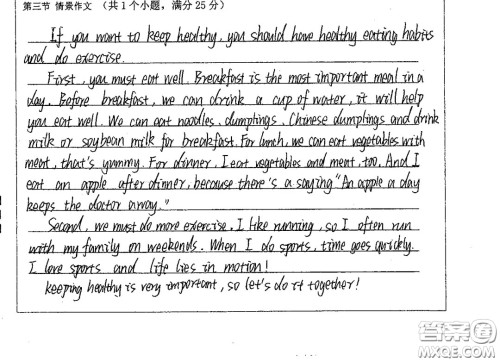 第三节 情景作文 （共1个小题，满分25分）
If you want to keep healthy, you should have healthy eating habits
and do exercise.
First, you must eat well. Breakfast is the most important meal in a
day. Before breakfast, we can drink a cup of water, it will help
you eat well. We can eat noodles, dumplings. Chinese dumplings and drink
milk or soybean milk for breakfast. For lunch, we can eat vegetables with
meat, that's yummy. For dinner, I eat vegetables and meat, too. And I
eat an apple after dinner, because there's a saying "An apple a day
keeps the doctor away."
Second, we must do more exercise. I like running, so I often run
with my family on weekends. When I do sports, time goes quickly.
I love sports and life lies in motion!
keeping healthy is very important, so let's do it together!
答案圈